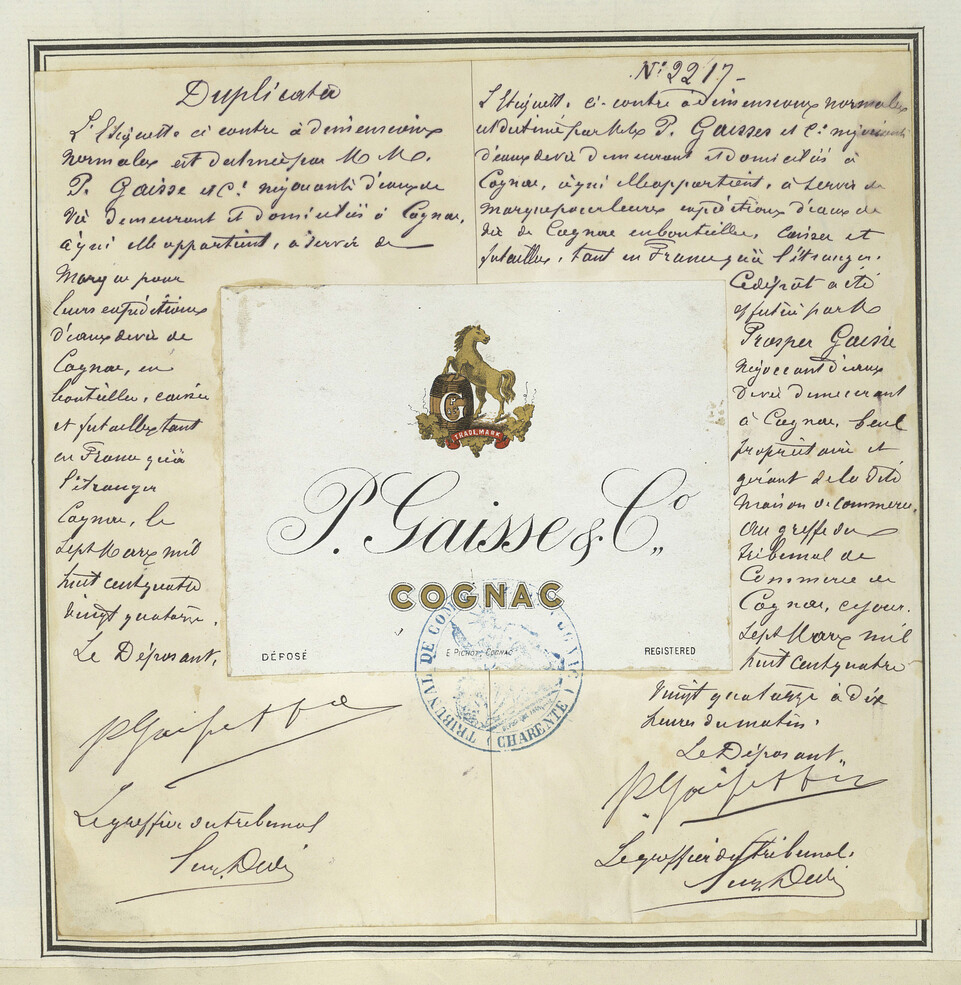 Duplicata
L'Etiquette ci contre à dimensions
normales est destinée par M M.
P. Gaisse et Cie négociants d'eaux de
vie demeurant et domiciliés à Cognac,
à qui elle appartient, à servir de
Marque pour
leurs expéditions
d'eaux de vie de
Cognac, en
bouteilles, caisses
et futailles tant
en France qu'à
l'étranger
Cognac, le
Sept Mars mil
huit cent quatre
vingt quatorze.
Le Déposant,
P Gaisse et Cie
Le greffier du tribunal
No 2217-
L'Etiquette ci-contre à dimensions normales
est destinée par M.M. P. Gaisses et Cie négociants
d'eaux de vie demeurant et domiciliés à
Cognac, à qui elle appartient, à servir de
marque pour leurs expéditions d'eaux de
vie de Cognac en bouteilles, caisses et
futailles, tant en France qu'à l'étranger.
Ce dépôt a été
effectué par M
Prosper Gaisse
négociant d'eaux
de vie demeurant
à Cognac, seul
propriétaire et
gérant de la dite
maison de commerce,
au greffe du
tribunal de
Commerce de
Cognac, ce jour.
Sept Mars mil
huit cent quatre
vingt quatorze à dix
heures du matin.
Le Déposant,
P Gaisse et Cie
Le greffier du tribunal.
G
TRADE MARK
P. Gaisse & Co
COGNAC
DÉPOSÉ
E. PICHOT, COGNAC
REGISTERED
TRIBUNAL DE COGNAC (CHARENTE)